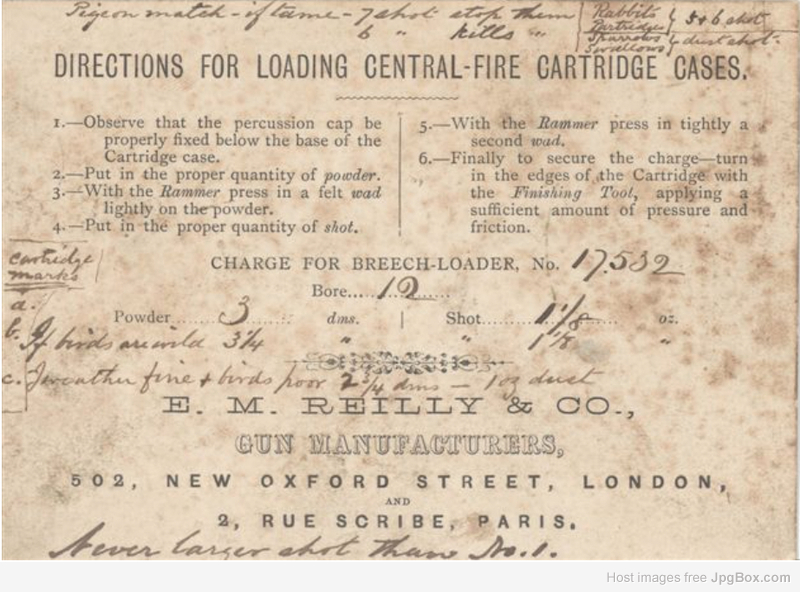 Pigeon match - if tame - 7 shot stop them
6 " kills "
Rabbits
Partridges
} 5 + 6 shot
Sparrows
Swallows
} dust shot.
DIRECTIONS FOR LOADING CENTRAL-FIRE CARTRIDGE CASES.
1.—Observe that the percussion cap be
properly fixed below the base of the
Cartridge case.
2.—Put in the proper quantity of powder.
3.—With the Rammer press in a felt wad
lightly on the powder.
4.—Put in the proper quantity of shot.
5.—With the Rammer press in tightly a
second wad.
6.—Finally to secure the charge—turn
in the edges of the Cartridge with
the Finishing Tool, applying a
sufficient amount of pressure and
friction.
cartridge
marks
CHARGE FOR BREECH-LOADER, No. 17.532
Bore....12......
a. Powder........3........ dms. | Shot........1 1/8........ oz.
b. If birds are wild 3 1/4 " " 1 1/8 "
c. If weather fine + birds poor 2 3/4 dms — 1 oz dust
E. M. REILLY & CO.,
GUN MANUFACTURERS,
502, NEW OXFORD STREET, LONDON,
AND
2, RUE SCRIBE, PARIS.
Never larger shot than No. 1.
Host images free JpgBox.com